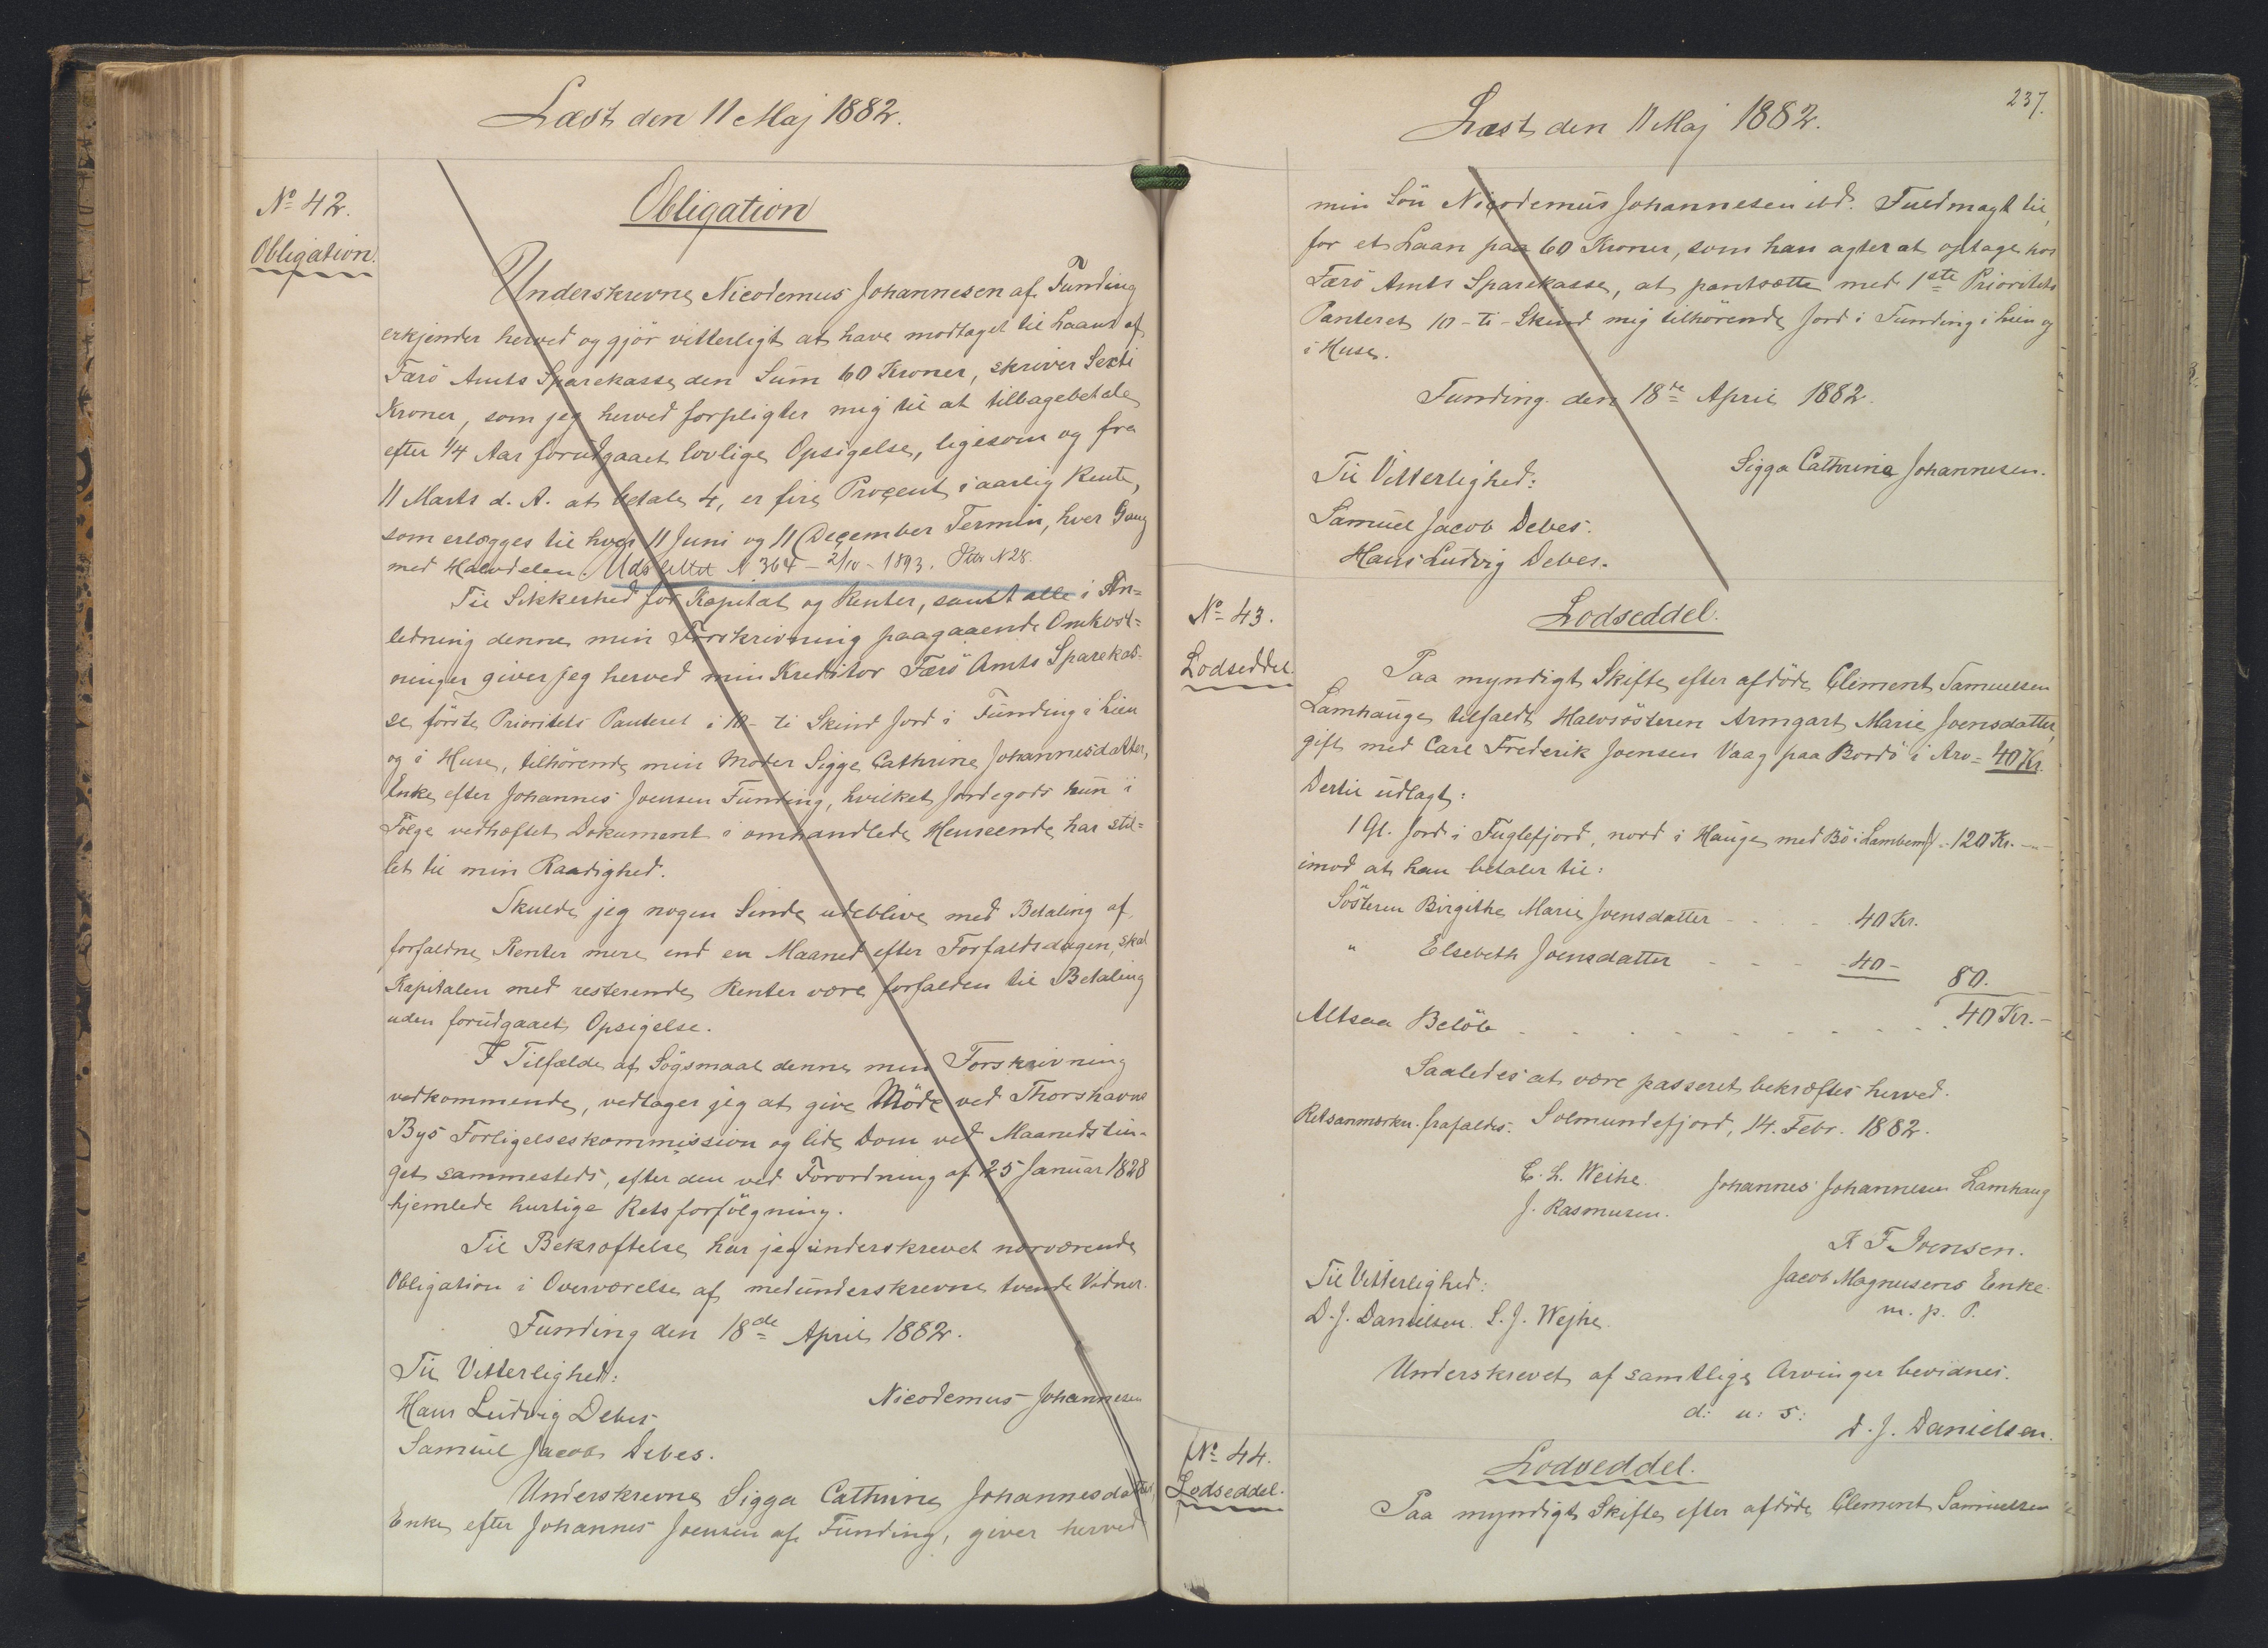 Læst den 11 Maj 1882.
No 42.
Obligation.
Obligation
Underskrevne Nicodemus Johannesen af Funding
erkjender herved og gjör vitterligt at have modtaget til Laans af
Færö Amts Sparekasse den Sum 60 Kroner, skriver Sexti
Kroner, som jeg herved forpligter mig til at tilbagebetale
efter 1/4 Aar forudgaaet lovlige Opsigelse, ligesom og fra
11 Marts d. A. at betale 4, er fire Procent i aarlig Rente,
som erlægges til hver 11 Juni og 11 December Termin, hver Gang
med Halvdelen. Udslettet N 364 - 2/10 - 1893. N 28.
Til Sikkerhed for Kapital og Renter, samt alle i An=
ledning denne min Forskrivning paagaaende Omkost=
ninger giver jeg herved min Kreditor Færö Amts Sparekas-
se förste Prioritets Panteret i 10 - ti Skind Jord i Funding i Lien
og i Huse, tilhörende min Moder Sigga Cathrine Johannesdatter,
Enke efter Johannes Joensen Funding, hvilket Jordegods hun i
Fölge vedhæftet Dokument i omhandlede Henseende har stil=
let til min Raadighed.
Skulde jeg nogen Sinde udeblive med Betaling af
forfaldne Renter mere end en Maaned efter Forfaldsdagen, skal
Kapitalen med resterende Renter være forfalden til Betaling
uden forudgaaet Opsigelse.
I Tilfælde af Sögsmaal denne min Forskrivning
vedkommende, vedtager jeg at give Möde ved Thorshavns
Byes Forligelseskommission og lide Dom ved Maanedstin-
get sammesteds, efter den ved Forordning af 25 Januar 1828
hjemlede hurtige Retsforfölgning.
Til Bekræftelse har jeg underskrevet nærværende
Obligation i Overværelse af medunderskrevne tvende Vidner.
Funding den 18de April 1882.
Til Vitterlighed:
Nicodemus Johannesen
Hans Ludvig Debes
Samuel Jacob Debes.
Underskrevne Sigga Cathrine Johannesdatter,
Enke efter Johannes Joensen af Funding, giver herved
237.
Læst den 11 Maj 1882.
min Sön Nicodemus Johannesen ibd. Fuldmagt til,
for et Laan paa 60 Kroner, som han agter at optage hos
Færö Amts Sparekasse, at pantsætte med 1ste Prioritets
Panteret 10 - ti - Skind mig tilhörende Jord i Funding i Lien og
i Huse.
Funding den 18de April 1882.
Sigga Cathrina Johannesen.
Til Vitterlighed:
Samuel Jacob Debes.
Hans Ludvig Debes.
No 43.
Lodseddel.
Lodseddel.
Paa myndigt Skifte efter afdöde Clement Samuelsen
Lamhauge tilfaldt Halvsösteren Armgart Marie Joensdatter,
gift med Carl Frederik Joensen Vaag paa Bordö i Arv = 40 Kr.
Dertil udlagt:
1 Gl. Jord i Fuglefjord, nord i Hauge med Bö i .. 120 Kr. -
imod at han betaler til:
Sösteren Birgithe Marie Joensdatter - - - 40 Kr.
" Elsebeth Joensdatter - - - 40 -
80.
Altsaa Belöb . . . . . . . . . 40 Kr. -
Saaledes at være passeret bekræftes herved.
Retsanmærkn. frafaldes. Solmundefjord, 14. Febr. 1882.
C. L. Weihe. Johannes Johannesen Lamhaug
J. Rasmusen.
K F. Joensen.
Til Vitterlighed:
Jacob Magnusens Enke
m. p. P.
D. J. Danielsen. S. J. Wejhe.
Underskrevet af samtlige Arvinger bevidnes.
d: u: s:
D. J. Danielsen.
No 44.
Lodseddel.
Lodseddel.
Paa myndigt Skifte efter afdöde Clement Samuelsen